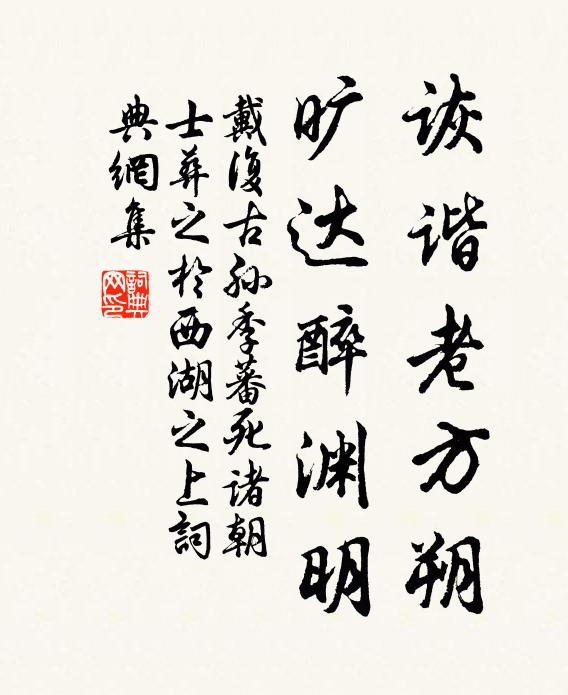 诙谐老方朔
旷达醉渊明
戴復古孙季蕃死诸朝
士葬之於西湖之上詞
典網集
詞典
网印